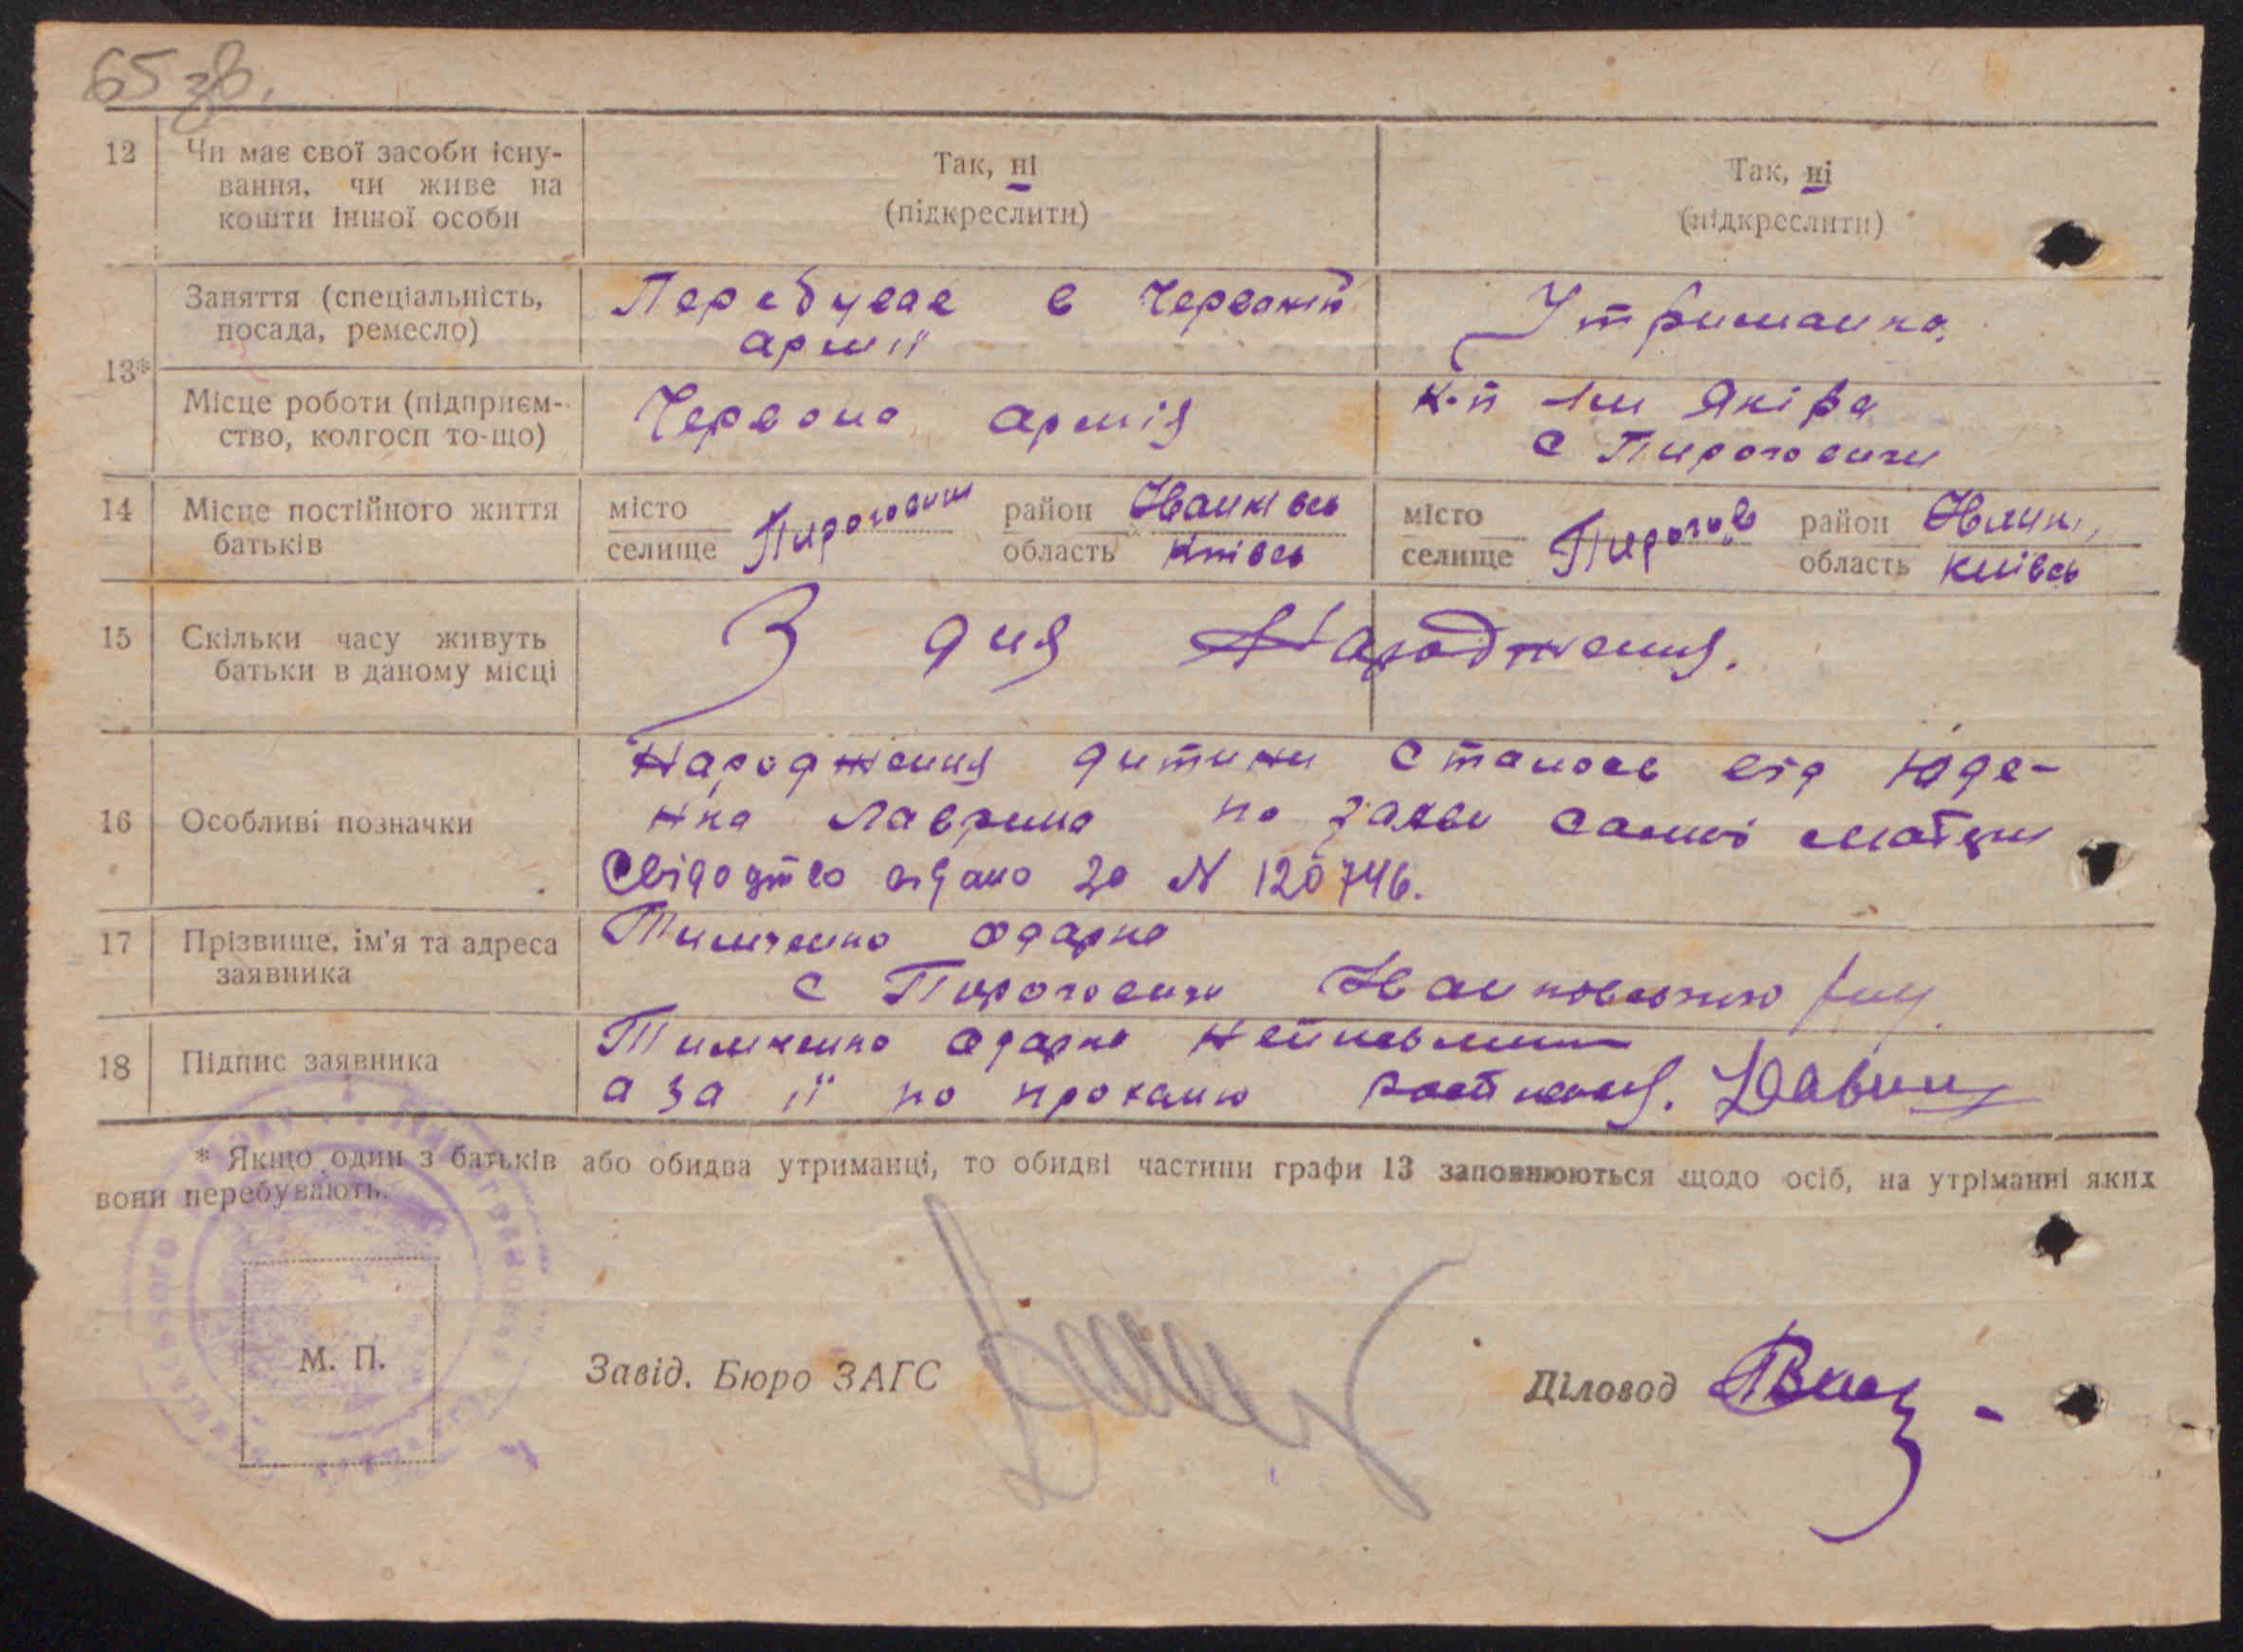 65 зв.
12 Чи має свої засоби існу-
вання, чи живе на
кошти іншої особи
Так, ні
(підкреслити)
Так, ні
(підкреслити)
13*
Заняття (спеціальність,
посада, ремесло)
Перебуває в Червоній
армії
Утриманка.
Місце роботи (підприєм-
ство, колгосп то-що)
Червона армія
к-п Якіра
с Пироговичи
14 Місце постійного життя
батьків
місто
селище
Пироговичи
район Іванківсь
область Київсь
місто
селище
Пирогов
район Іванк,
область Київсь
15 Скільки часу живуть
батьки в даному місці
З дня Народження.
16 Особливі позначки
Народження дитини сталось від
Лаврина по заяві самої матери
Свідоцтво видано за N 120746.
17 Прізвище, ім'я та адреса
заявника
Тимченко Одарка
с Пироговичи Іванковського
18 Підпис заявника
Тимченко Одарка
а за її по проханню
* Якщо один з батьків або обидва утриманці, то обидві частини графи 13 заповнюються щодо осіб, на утріманні яких
вони перебувають.
М. П.
Завід. Бюро ЗАГС
Діловод